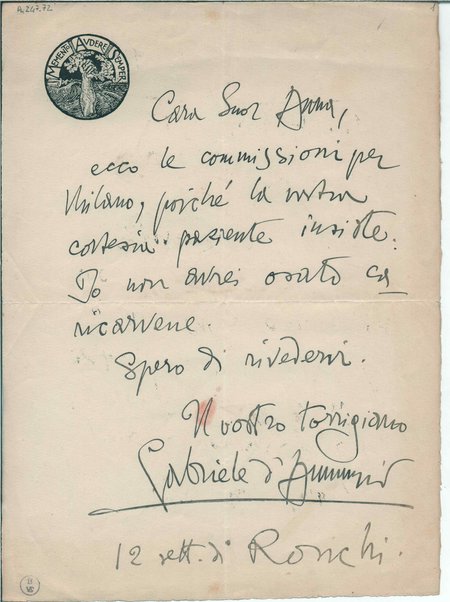 A.247.72
1
MEMENTO AVDERE SEMPER
Cara Suor Anna,
ecco le commissioni per
Milano, poiché la vostra
cortesia paziente insiste.
Io non avrei osato ca
ricarvene.
Spero di rivedervi.
Il vostro torrigiano
Gabriele d'Annunzio
12 sett. di Ronchi.